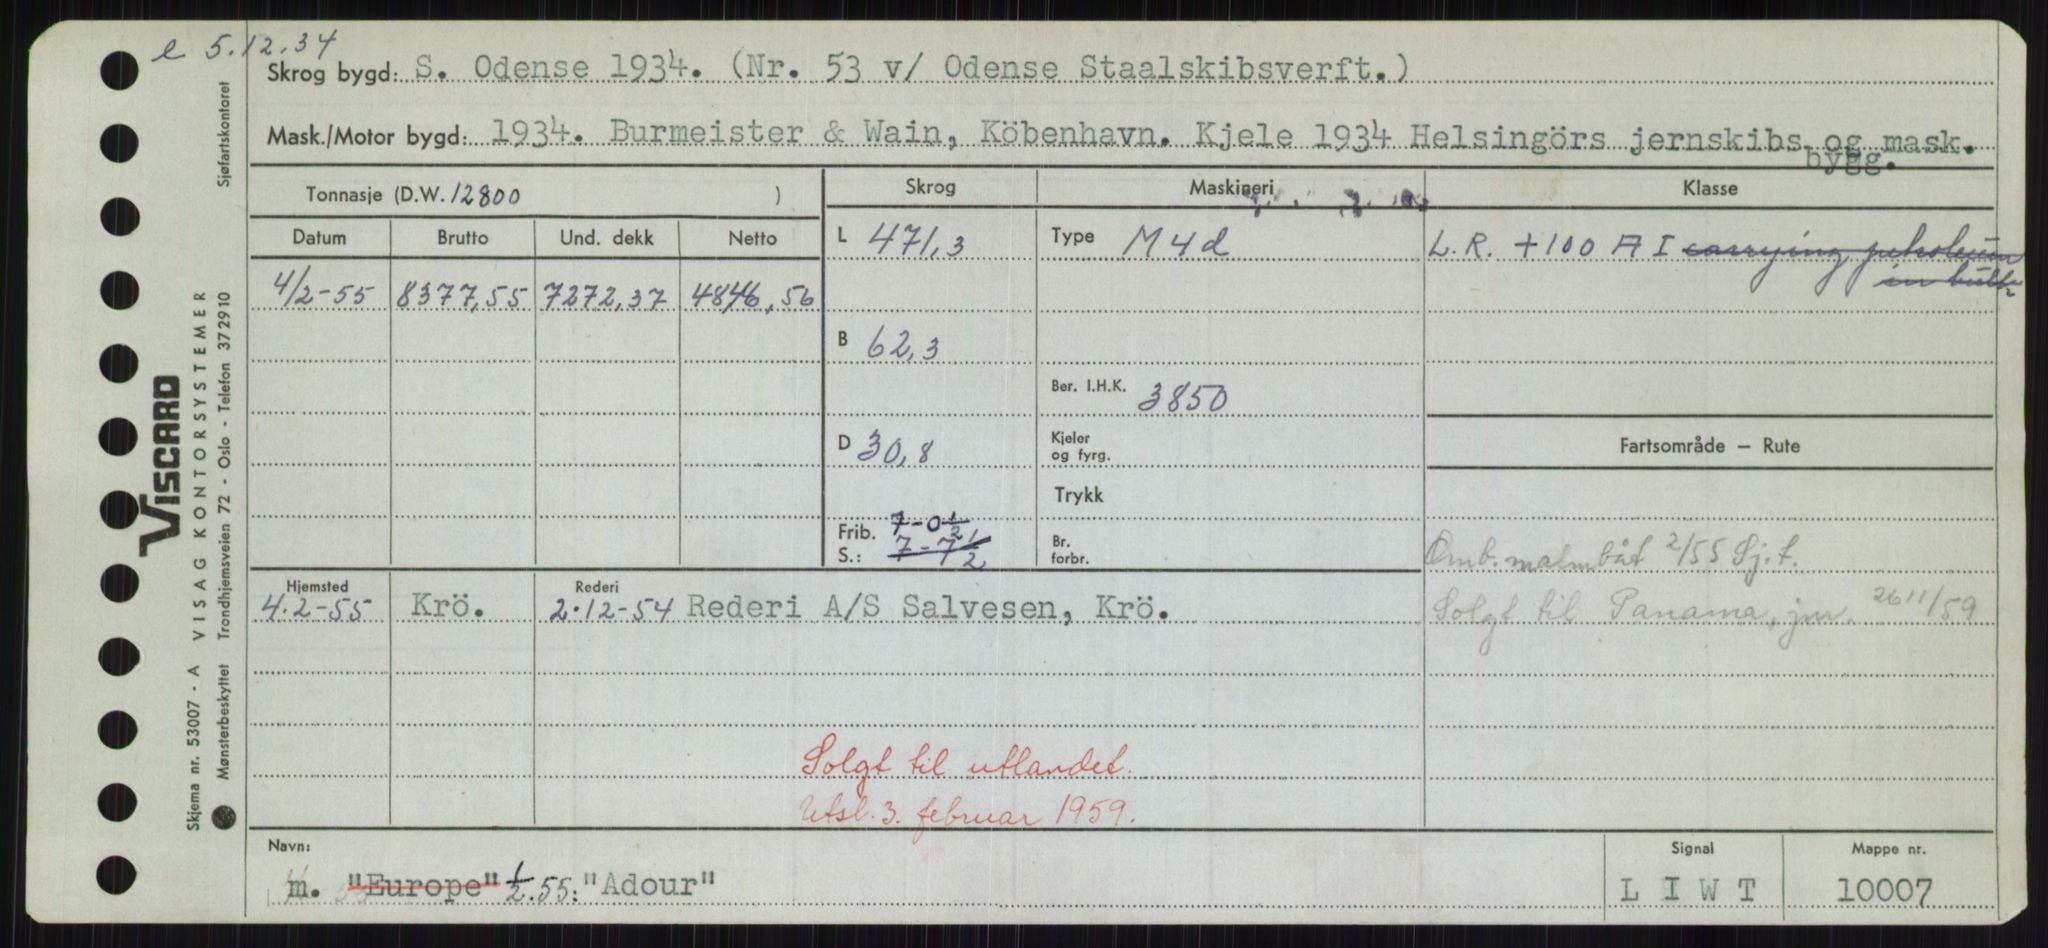 e 5.12.34
Skrog bygd: S. Odense 1934. (Nr. 53 v/ Odense Staalskibsverft.)
Mask./Motor bygd: 1934. Burmeister & Wain, Köbenhavn. Kjele 1934 Helsingörs jernskibs og mask.
bygg.
Tonnasje (D.W. 12800 )
Skrog
Maskineri
Klasse
Datum Brutto Und. dekk Netto
L 471,3
Type M 4 d
L.R. +100 A I carrying petroleum
in bulk
4/2-55 8377,55 7272,37 4846,56
B 62,3
Ber. I.H.K. 3850
D 30,8
Kjeler
og fyrg.
Fartsområde — Rute
Trykk
Frib. 7-0 1/2
S.: 7-7 1/2
Br.
forbr.
Omb. malmbåt 2/55 Sj.t.
Hjemsted Rederi
4.2-55 Krö. 2.12-54 Rederi A/S Salvesen, Krö.
Solgt til Panama, jnr. 2611/59
Solgt til utlandet.
Utsl. 3. februar 1959.
Navn:
m. "Europe" 1/2.55: "Adour"
Signal
L I W T
Mappe nr.
10007
Sjøfartskontoret
VISCARD
VISAG KONTORSYSTEMER
Trondhjemsveien 72 - Oslo - Telefon 372910
Skjema nr. 53007 - A
Mønsterbeskyttet